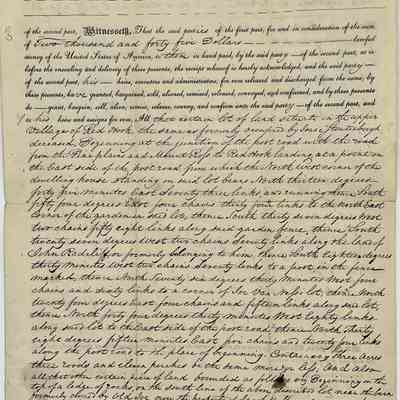 of the second part, Witnesseth, That the said parties of the first part, for and in consideration of the sum
of Two thousand and forty five Dollars lawful
money of the United States of America, to them in hand paid, by the said party of the second part, at or
before the ensealing and delivery of these presents, the receipt whereof is hereby acknowledged, and the said party
of the second part, his heirs, executors and administrators, forever released and discharged from the same, by
these presents, have granted, bargained, sold, aliened, remised, released, conveyed, and confirmed, and by these presents
do grant, bargain, sell, alien, remise, release, convey, and confirm unto the said party of the second part, and
to his heirs and assigns for ever, All that certain lot of land situate in the upper
Village of Red Hook the same as formerly occupied by
deceased. Beginning at the junction of the post road with the road
from the and Mount Ross to Red Hook landing at a point on
the east side of the post road from which the North West corner of the
dwelling house standing on said lot bears North thirteen degrees
forty five minutes East Seventy three links, and running thence South
fifty four degrees East four chains thirty four links to the North East
Corner of the garden on said lot, thence South thirty seven degrees West
two chains fifty eight links along said garden fence, thence South
twenty seven degrees West two chains Seventy links along the land of
John Radcliff formerly belonging to him, thence South eighteen degrees
thirty Minutes West two chains Seventy links to a post in the fence
marked, thence North Seventy six degrees thirty Minutes West four
chains and sixty links to a corner of lot, thence North
twenty four degrees East four chains and fifteen links along said lot,
thence North forty four degrees thirty minutes West Eighty links
along said lot to the East side of the post road, thence North Thirty
eight degrees fifteen minutes East five chains and twenty four links
along the post road to the place of beginning. Containing three acres
three roods and eleven perches be the same more or less, And also
all that other certain piece of land bounded as follows, by Beginning on the
top of a ledge of rocks on the south line of the above described lot near the barn
formerly owned by